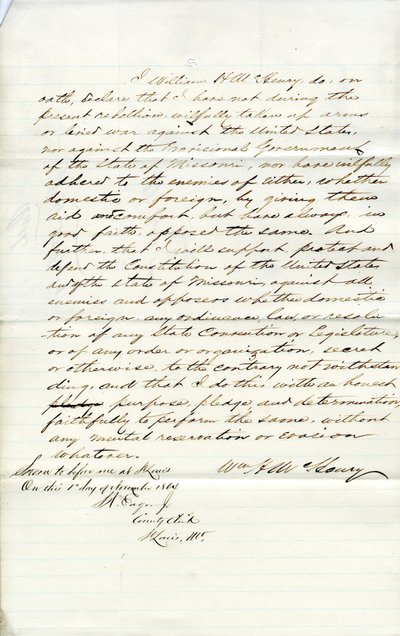 I William H McHenry, do, on
oath, declare that I have not during the
present rebellion, wilfully taken up arms
or levied war against the United States,
nor against the Provisional Government
of the State of Missouri, nor have wilfully
adhered to the enemies of either, whether
domestic or foreign, by giving them
aid and comfort, but have always, in
good faith, opposed the same. And
further, that I will support protect and
defend the Constitution of the United States
and of the State of Missouri, against all
enemies and opposers whether domestic
or foreign any ordinance, law, or resolu-
tion of any State Convention or Legislature,
or of any order or organization, secret
or otherwise, to the contrary not withstan
ding; and that I do this, with an honest
pledge purpose, pledge and determination,
faithfully to perform the same, without
any mental reservation or evasion
whatever.
Wm H McHenry
Sworn to before me at St Louis
On this 1st day of November 1864
County Clerk
St Louis, Mo,